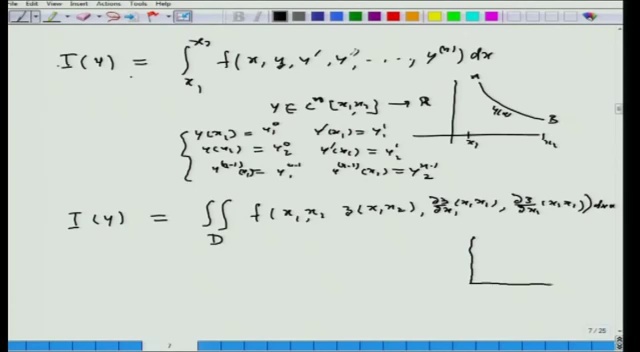 File Edit View Insert Actions Tools Help
I(y) = ∫_{x_1}^{x_2} f(x, y, y', y'', ...., y^{(n)}) dx
y ∈ C^n [x_1, x_2] → R
A
B
y(x)
x_1
x_2
y(x_1) = y_1^0 y'(x_1) = y_1^1
y(x_2) = y_2^0 y'(x_2) = y_2^1
y^{(n-1)}(x_1) = y_1^{n-1} y^{(n-1)}(x_2) = y_2^{n-1}
I(y) = ∬_D f(x_1, x_2 z(x_1, x_2), ∂z/∂x_1 (x_1, x_2), ∂z/∂x_2 (x_1, x_2)) dx
7 / 25
7